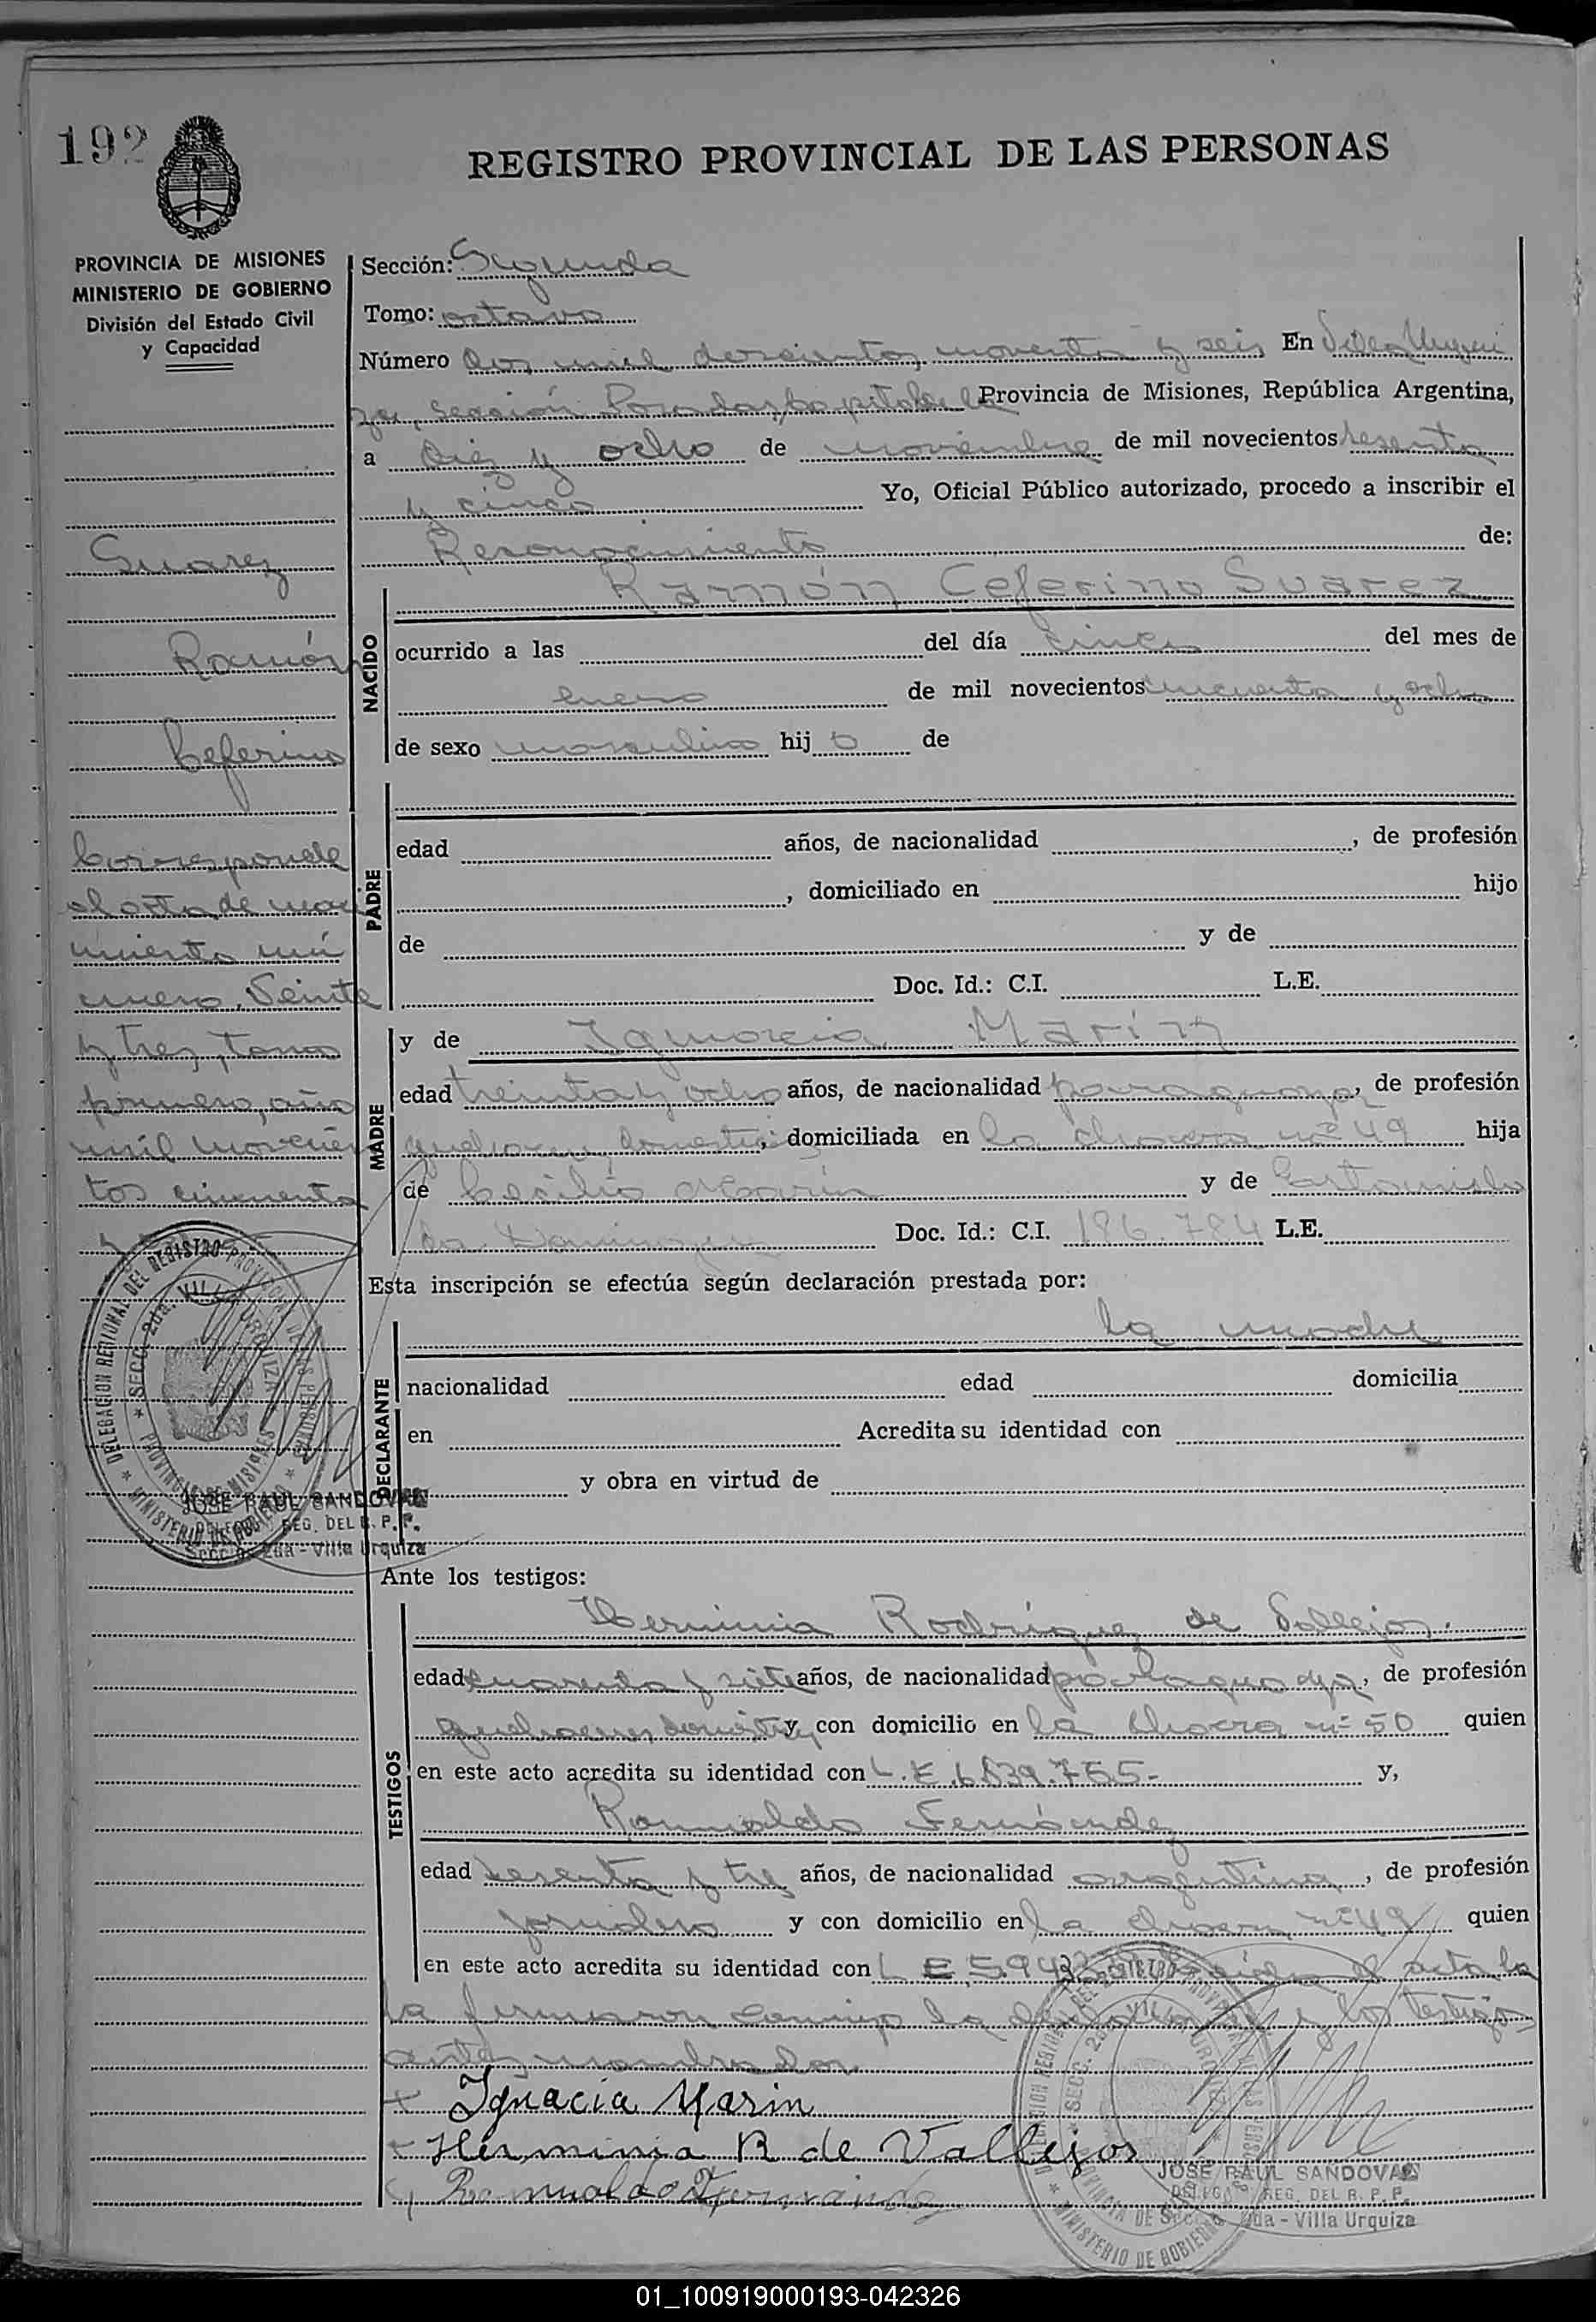 192
REGISTRO PROVINCIAL DE LAS PERSONAS
PROVINCIA DE MISIONES
MINISTERIO DE GOBIERNO
División del Estado Civil
y Capacidad
Suarez
Ramón
Ceferino
Corresponde
el acta de naci
miento nú
mero, Veinte
y tres, tomo
primero, año
mil novecien
tos cincuenta
y
DELEGACION REGIONAL DEL REGISTRO PROVINCIAL DE LAS PERSONAS
SECC. 2da. VILLA URQUIZA
PROVINCIA DE MISIONES
MINISTERIO DE GOBIERNO
JOSE RAUL SANDOVAL
REG. DEL R. P. P.
Secc. 2da - Villa Urquiza
Sección: Segunda
Tomo: octavo
Número dos mil doscientos noventa y seis En Villa Urqui
za, sección Posadas, Capital de la Provincia de Misiones, República Argentina,
a diez y ocho de noviembre de mil novecientos sesenta
y cinco Yo, Oficial Público autorizado, procedo a inscribir el
Reconocimiento de:
NACIDO
Ramón Ceferino Suarez
ocurrido a las del día cinco del mes de
enero de mil novecientos cincuenta y ocho
de sexo masculino hijo de
PADRE
edad años, de nacionalidad , de profesión
, domiciliado en hijo
de y de
Doc. Id.: C.I. L.E.
MADRE
y de Ignacia Marín
edad treinta y ocho años, de nacionalidad paraguaya, de profesión
quehaceres domésticos, domiciliada en la chacra nº 49 hija
de Cecilio Marín y de
Doc. Id.: C.I. 196.784 L.E.
Esta inscripción se efectúa según declaración prestada por:
DECLARANTE
la madre
nacionalidad edad domicilia
en Acredita su identidad con
y obra en virtud de
Ante los testigos:
TESTIGOS
Herminia Rodríguez de Vallejos.
edad cuarenta y siete años, de nacionalidad paraguaya, de profesión
quehaceres domést y con domicilio en la chacra nº 50 quien
en este acto acredita su identidad con L.E. 6839.755- y,
Romualdo Fernández
edad sesenta y tres años, de nacionalidad argentina, de profesión
jornalero y con domicilio en la chacra nº 49 quien
en este acto acredita su identidad con L E 5.94 acta la
la firmaron conmigo la y los testigos
antes nombrados.
Ignacia Marin
Herminia R de Vallejos
Romualdo Fernández
DELEGACION REGIONAL DEL REGISTRO PROVINCIAL DE LAS PERSONAS
SECC. 2da. VILLA URQUIZA
PROVINCIA DE
MINISTERIO DE GOBIERNO
JOSE RAUL SANDOVAL
REG. DEL R. P. P.
Secc. 2da - Villa Urquiza
01_100919000193-042326